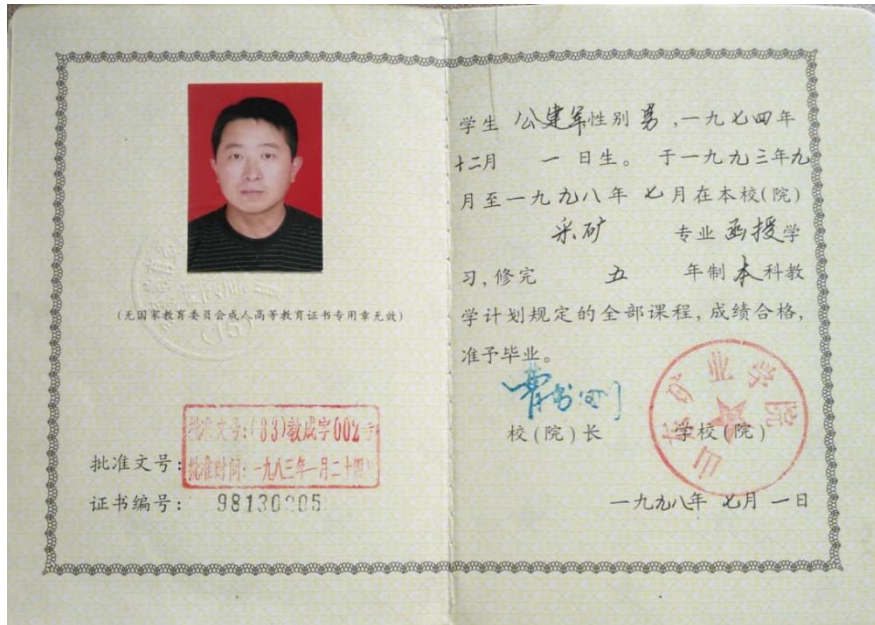 (无国家教育委员会成人高等教育证书专用章无效)
批准文号:(83)教成字002号
批准时间:一九八三年一月二十四日
批准文号:
证书编号: 98130205
学生 公建军性别 男 ,一九七四年
十二月 一 日生。 于一九九三年九
月至一九九八年 七月在本校(院)
采矿 专业 函授学
习,修完 五 年制本科教
学计划规定的全部课程,成绩合格,
准予毕业。
校(院)长 学校(院)
山东矿业学院
一九九八年 七月 一日